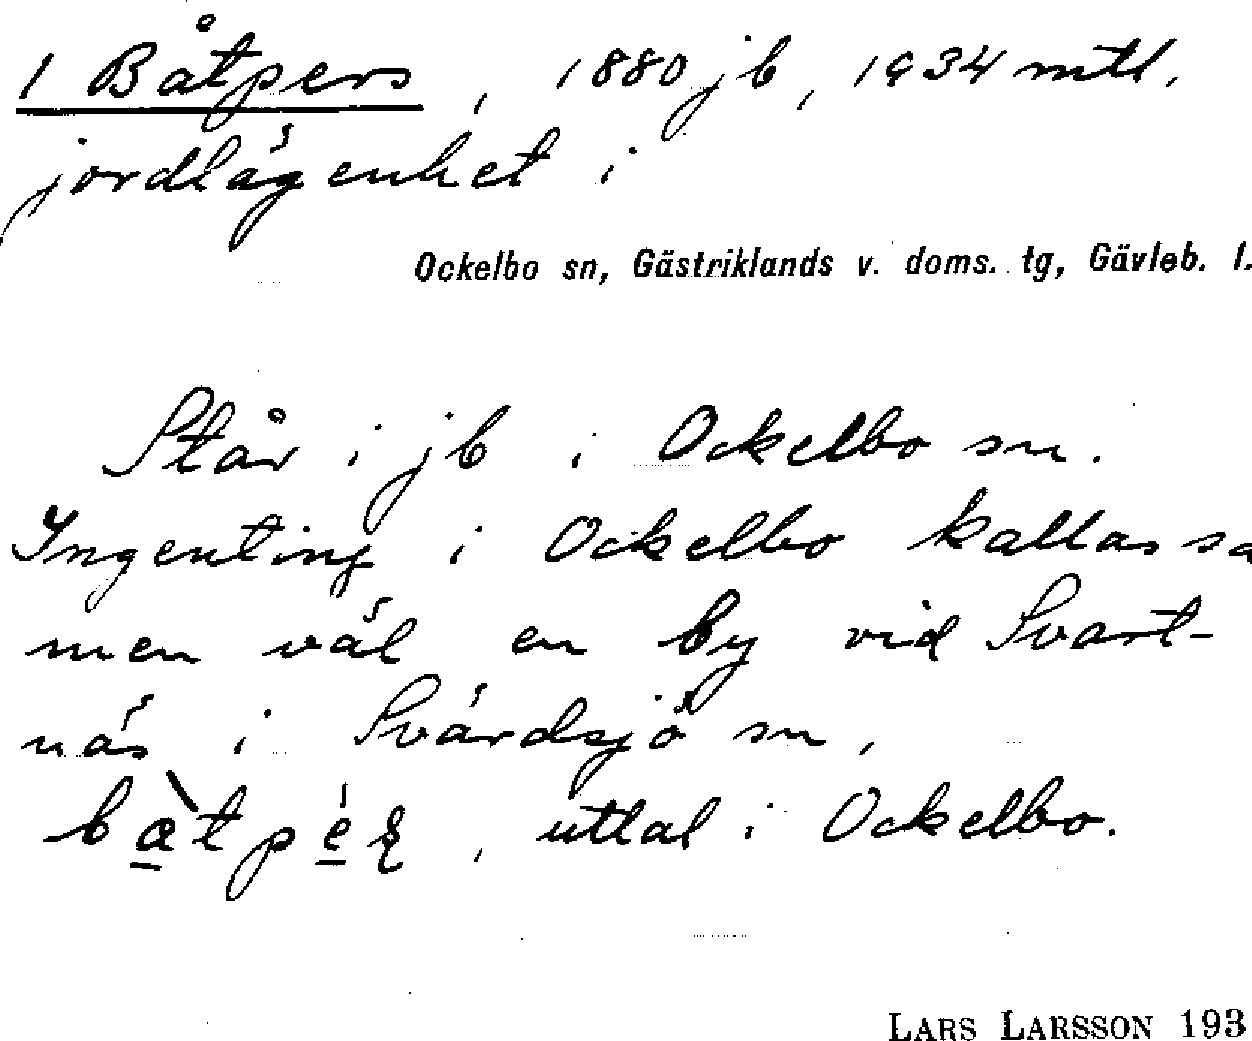 1 Båtpers, 1880 jb, 1934 mtl.
jordlägenhet i
Ockelbo sn, Gästriklands v. doms. tg, Gävleb. l.
Står i jb i Ockelbo sn.
Ingenting i Ockelbo kallas så
men väl en by vid Svart-
näs i Svärdsjö sn,
uttal i Ockelbo.
LARS LARSSON 193